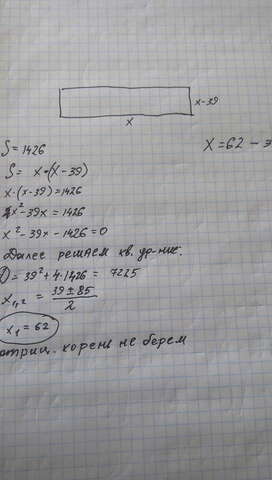 x-39
x
S=1426
X=62 - э
S= x·(x-39)
x·(x-39)=1426
x²-39x=1426
x²-39x-1426=0
Далее решаем кв. ур-ние:
D=39²+4·1426= 7225
x₁,₂ = 39±85
2
x₁=62
отриц. корень не берем